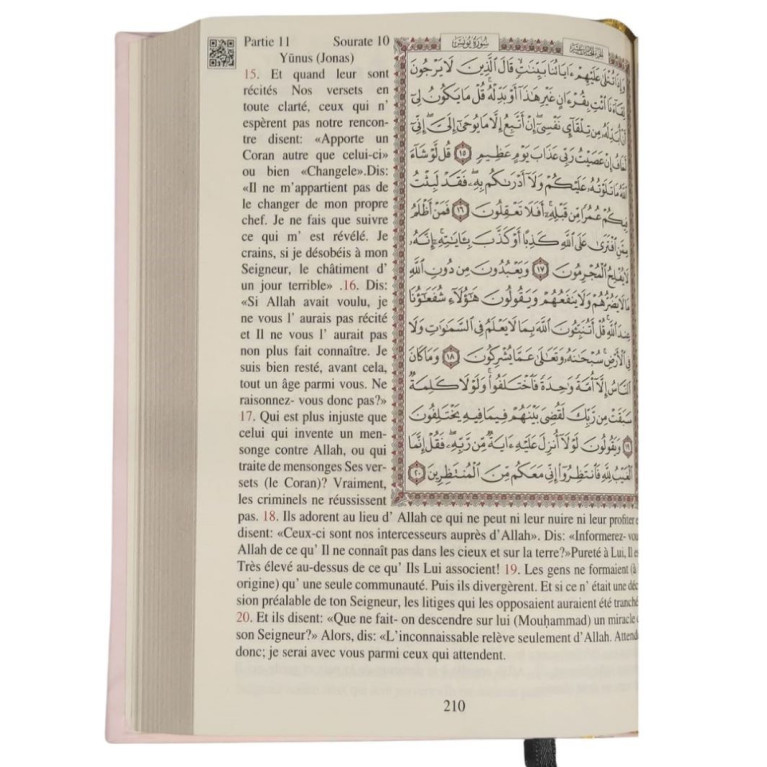 Partie 11 Sourate 10
Yūnus (Jonas)
15. Et quand leur sont
récités Nos versets en
toute clarté, ceux qui n’
espèrent pas notre rencon-
tre disent: «Apporte un
Coran autre que celui-ci»
ou bien «Changele».Dis:
«Il ne m’appartient pas de
le changer de mon propre
chef. Je ne fais que suivre
ce qui m’ est révélé. Je
crains, si je désobéis à mon
Seigneur, le châtiment d’
un jour terrible» .16. Dis:
«Si Allah avait voulu, je
ne vous l’ aurais pas récité
et Il ne vous l’ aurait pas
non plus fait connaître. Je
suis bien resté, avant cela,
tout un âge parmi vous. Ne
raisonnez- vous donc pas?»
17. Qui est plus injuste que
celui qui invente un men-
songe contre Allah, ou qui
traite de mensonges Ses ver-
sets (le Coran)? Vraiment,
les criminels ne réussissent
سُورَةُ يُونُسَ
وَإِذَا تُتْلَىٰ عَلَيْهِمْ ءَايَاتُنَا بَيِّنَٰتٍ قَالَ ٱلَّذِينَ لَا يَرْجُونَ
لِقَآءَنَا ٱئْتِ بِقُرْءَانٍ غَيْرِ هَٰذَآ أَوْ بَدِّلْهُ قُلْ مَا يَكُونُ لِىٓ
أَنْ أُبَدِّلَهُۥ مِن تِلْقَآئِ نَفْسِىٓ إِنْ أَتَّبِعُ إِلَّا مَا يُوحَىٰٓ إِلَىَّ إِنِّىٓ
أَخَافُ إِنْ عَصَيْتُ رَبِّى عَذَابَ يَوْمٍ عَظِيمٍ ١٥ قُل لَّوْ شَآءَ
ٱللَّهُ مَا تَلَوْتُهُۥ عَلَيْكُمْ وَلَآ أَدْرَىٰكُم بِهِۦ فَقَدْ لَبِثْتُ
فِيكُمْ عُمُرًا مِّن قَبْلِهِۦٓ أَفَلَا تَعْقِلُونَ ١٦ فَمَنْ أَظْلَمُ
مِمَّنِ ٱفْتَرَىٰ عَلَى ٱللَّهِ كَذِبًا أَوْ كَذَّبَ بِـَٔايَٰتِهِۦٓ إِنَّهُۥ
لَا يُفْلِحُ ٱلْمُجْرِمُونَ ١٧ وَيَعْبُدُونَ مِن دُونِ ٱللَّهِ
مَا لَا يَضُرُّهُمْ وَلَا يَنفَعُهُمْ وَيَقُولُونَ هَٰٓؤُلَآءِ شُفَعَٰٓؤُنَا
عِندَ ٱللَّهِ قُلْ أَتُنَبِّـُٔونَ ٱللَّهَ بِمَا لَا يَعْلَمُ فِى ٱلسَّمَٰوَٰتِ وَلَا
فِى ٱلْأَرْضِ سُبْحَٰنَهُۥ وَتَعَٰلَىٰ عَمَّا يُشْرِكُونَ ١٨ وَمَا كَانَ
ٱلنَّاسُ إِلَّآ أُمَّةً وَٰحِدَةً فَٱخْتَلَفُوا۟ وَلَوْلَا كَلِمَةٌ
سَبَقَتْ مِن رَّبِّكَ لَقُضِىَ بَيْنَهُمْ فِيمَا فِيهِ يَخْتَلِفُونَ
١٩ وَيَقُولُونَ لَوْلَآ أُنزِلَ عَلَيْهِ ءَايَةٌ مِّن رَّبِّهِۦ فَقُلْ إِنَّمَا
ٱلْغَيْبُ لِلَّهِ فَٱنتَظِرُوٓا۟ إِنِّى مَعَكُم مِّنَ ٱلْمُنتَظِرِينَ ٢٠
pas. 18. Ils adorent au lieu d’ Allah ce qui ne peut ni leur nuire ni leur profiter e
disent: «Ceux-ci sont nos intercesseurs auprès d’Allah». Dis: «Informerez- vou
Allah de ce qu’ Il ne connaît pas dans les cieux et sur la terre?»Pureté à Lui, Il e
Très élevé au-dessus de ce qu’ Ils Lui associent! 19. Les gens ne formaient (à
origine) qu’ une seule communauté. Puis ils divergèrent. Et si ce n’ était une déc
sion préalable de ton Seigneur, les litiges qui les opposaient auraient été tranché
20. Et ils disent: «Que ne fait- on descendre sur lui (Mouḥammad) un miracle
son Seigneur?» Alors, dis: «L’inconnaissable relève seulement d’Allah. Attend
donc; je serai avec vous parmi ceux qui attendent.
210